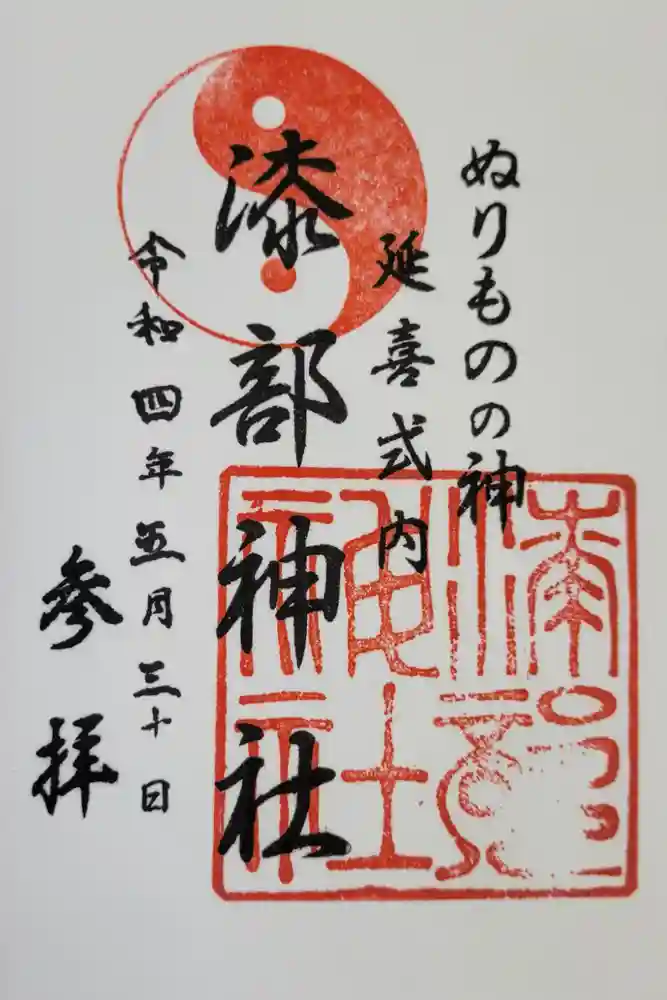 ぬりものの神
延喜式内
漆部神社
令和四年五月三十日
参拝
漆部
神社